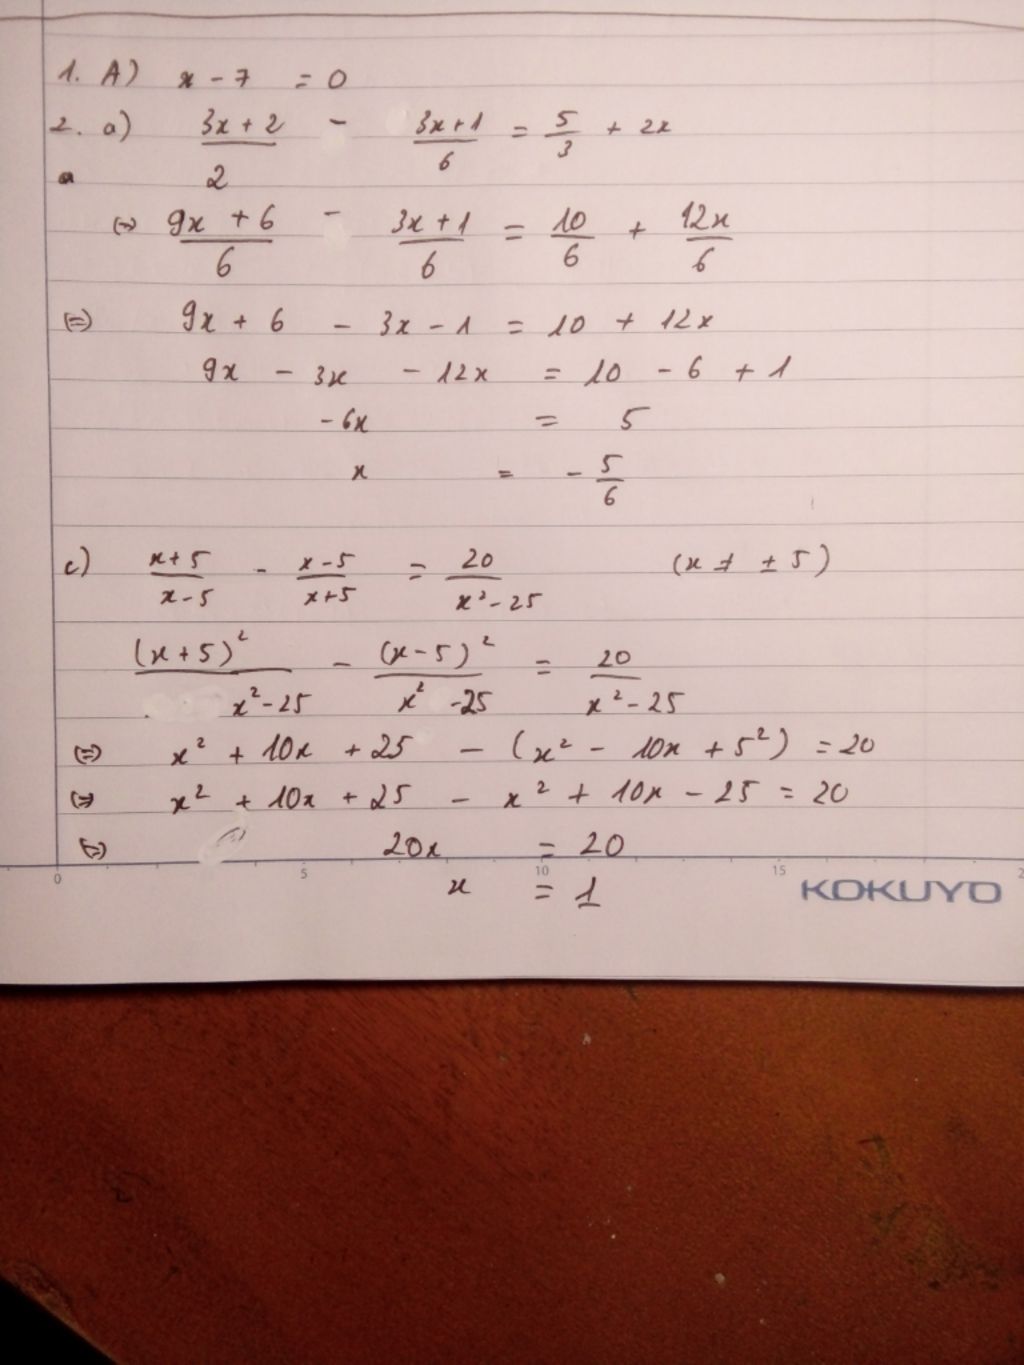 1. A) x - 7 = 0
2. a) (3x + 2)/2 - (3x + 1)/6 = 5/3 + 2x
(=) (9x + 6)/6 - (3x + 1)/6 = 10/6 + 12x/6
(=) 9x + 6 - 3x - 1 = 10 + 12x
9x - 3x - 12x = 10 - 6 + 1
-6x = 5
x = - 5/6
c) (x + 5)/(x - 5) - (x - 5)/(x + 5) = 20/(x² - 25) (x ≠ ± 5)
(x + 5)²/(x² - 25) - (x - 5)²/(x² - 25) = 20/(x² - 25)
(=) x² + 10x + 25 - (x² - 10x + 5²) = 20
(=) x² + 10x + 25 - x² + 10x - 25 = 20
(=) 20x = 20
0 5 10 15 2
x = 1
KOKUYO